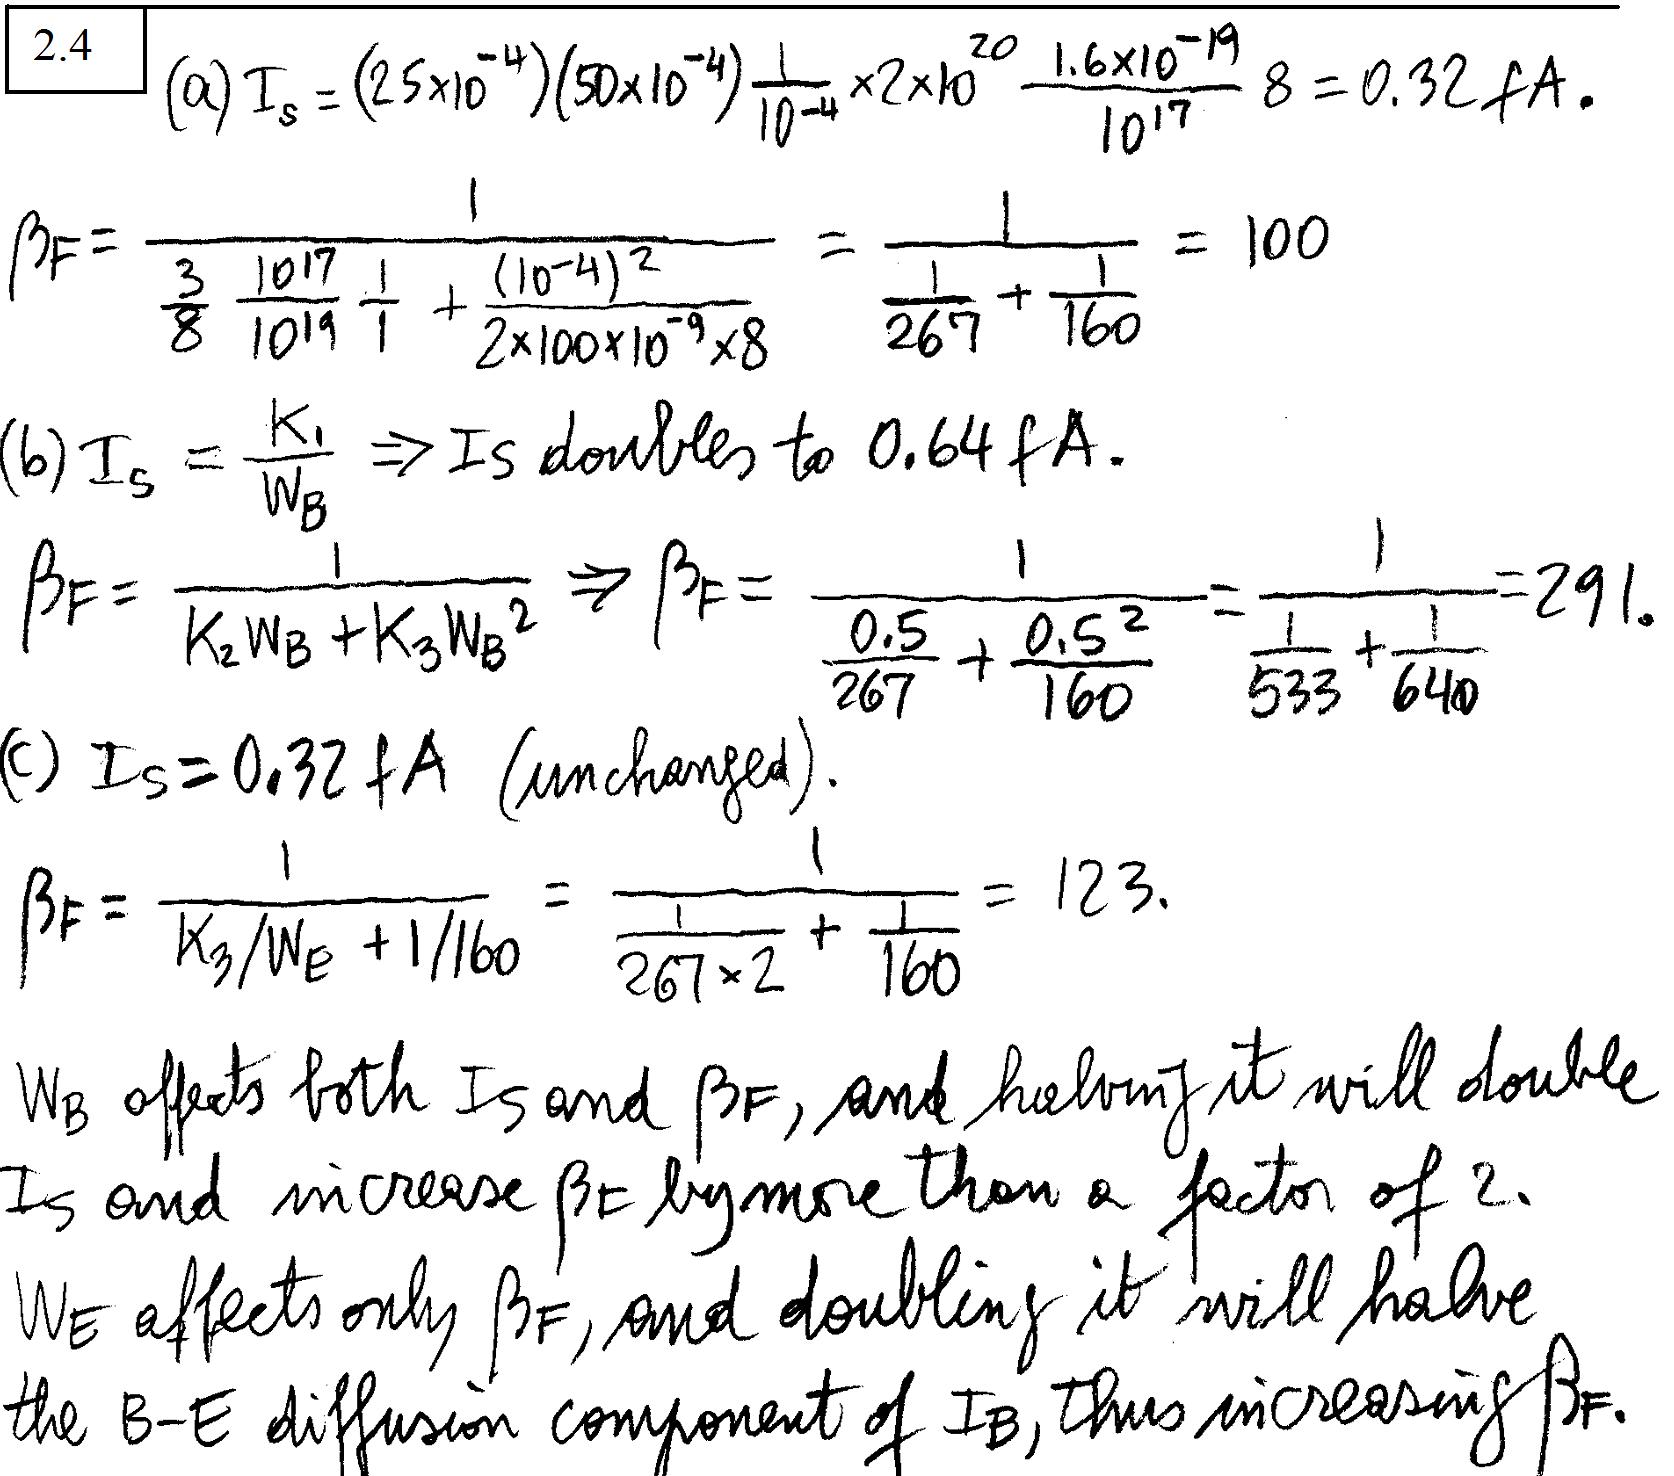 2.4
(a) I_s = (25×10^-4)(50×10^-4) 1/10^-4 ×2×10^20 1.6×10^-19/10^17 8 = 0.32 fA.
β_F = 1/(3/8 10^17/10^19 1/1 + (10^-4)^2/(2×100×10^-9×8)) = 1/(1/267 + 1/160) = 100
(b) I_s = K_1/W_B ⇒ Is doubles to 0.64 fA.
β_F = 1/(K_2 W_B + K_3 W_B^2) ⇒ β_F = 1/(0.5/267 + 0.5^2/160) = 1/(1/533 + 1/640) = 291.
(c) I_S = 0.32 fA (unchanged).
β_F = 1/(K_3/W_E + 1/160) = 1/(1/(267×2) + 1/160) = 123.
W_B affects both I_S and β_F, and halving it will double
I_S and increase β_F by more than a factor of 2.
W_E affects only β_F, and doubling it will halve
the B-E diffusion component of I_B, thus increasing β_F.